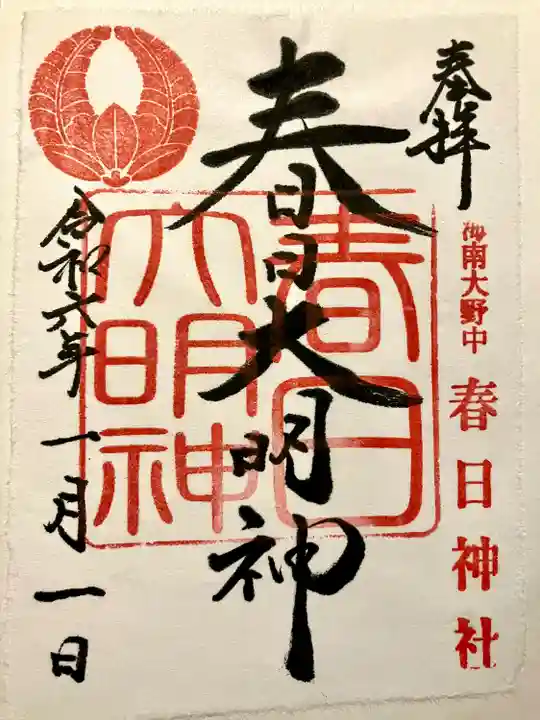 奉拝
海南大野中 春日神社
春日大明神
春日大明神
令和六年一月一日